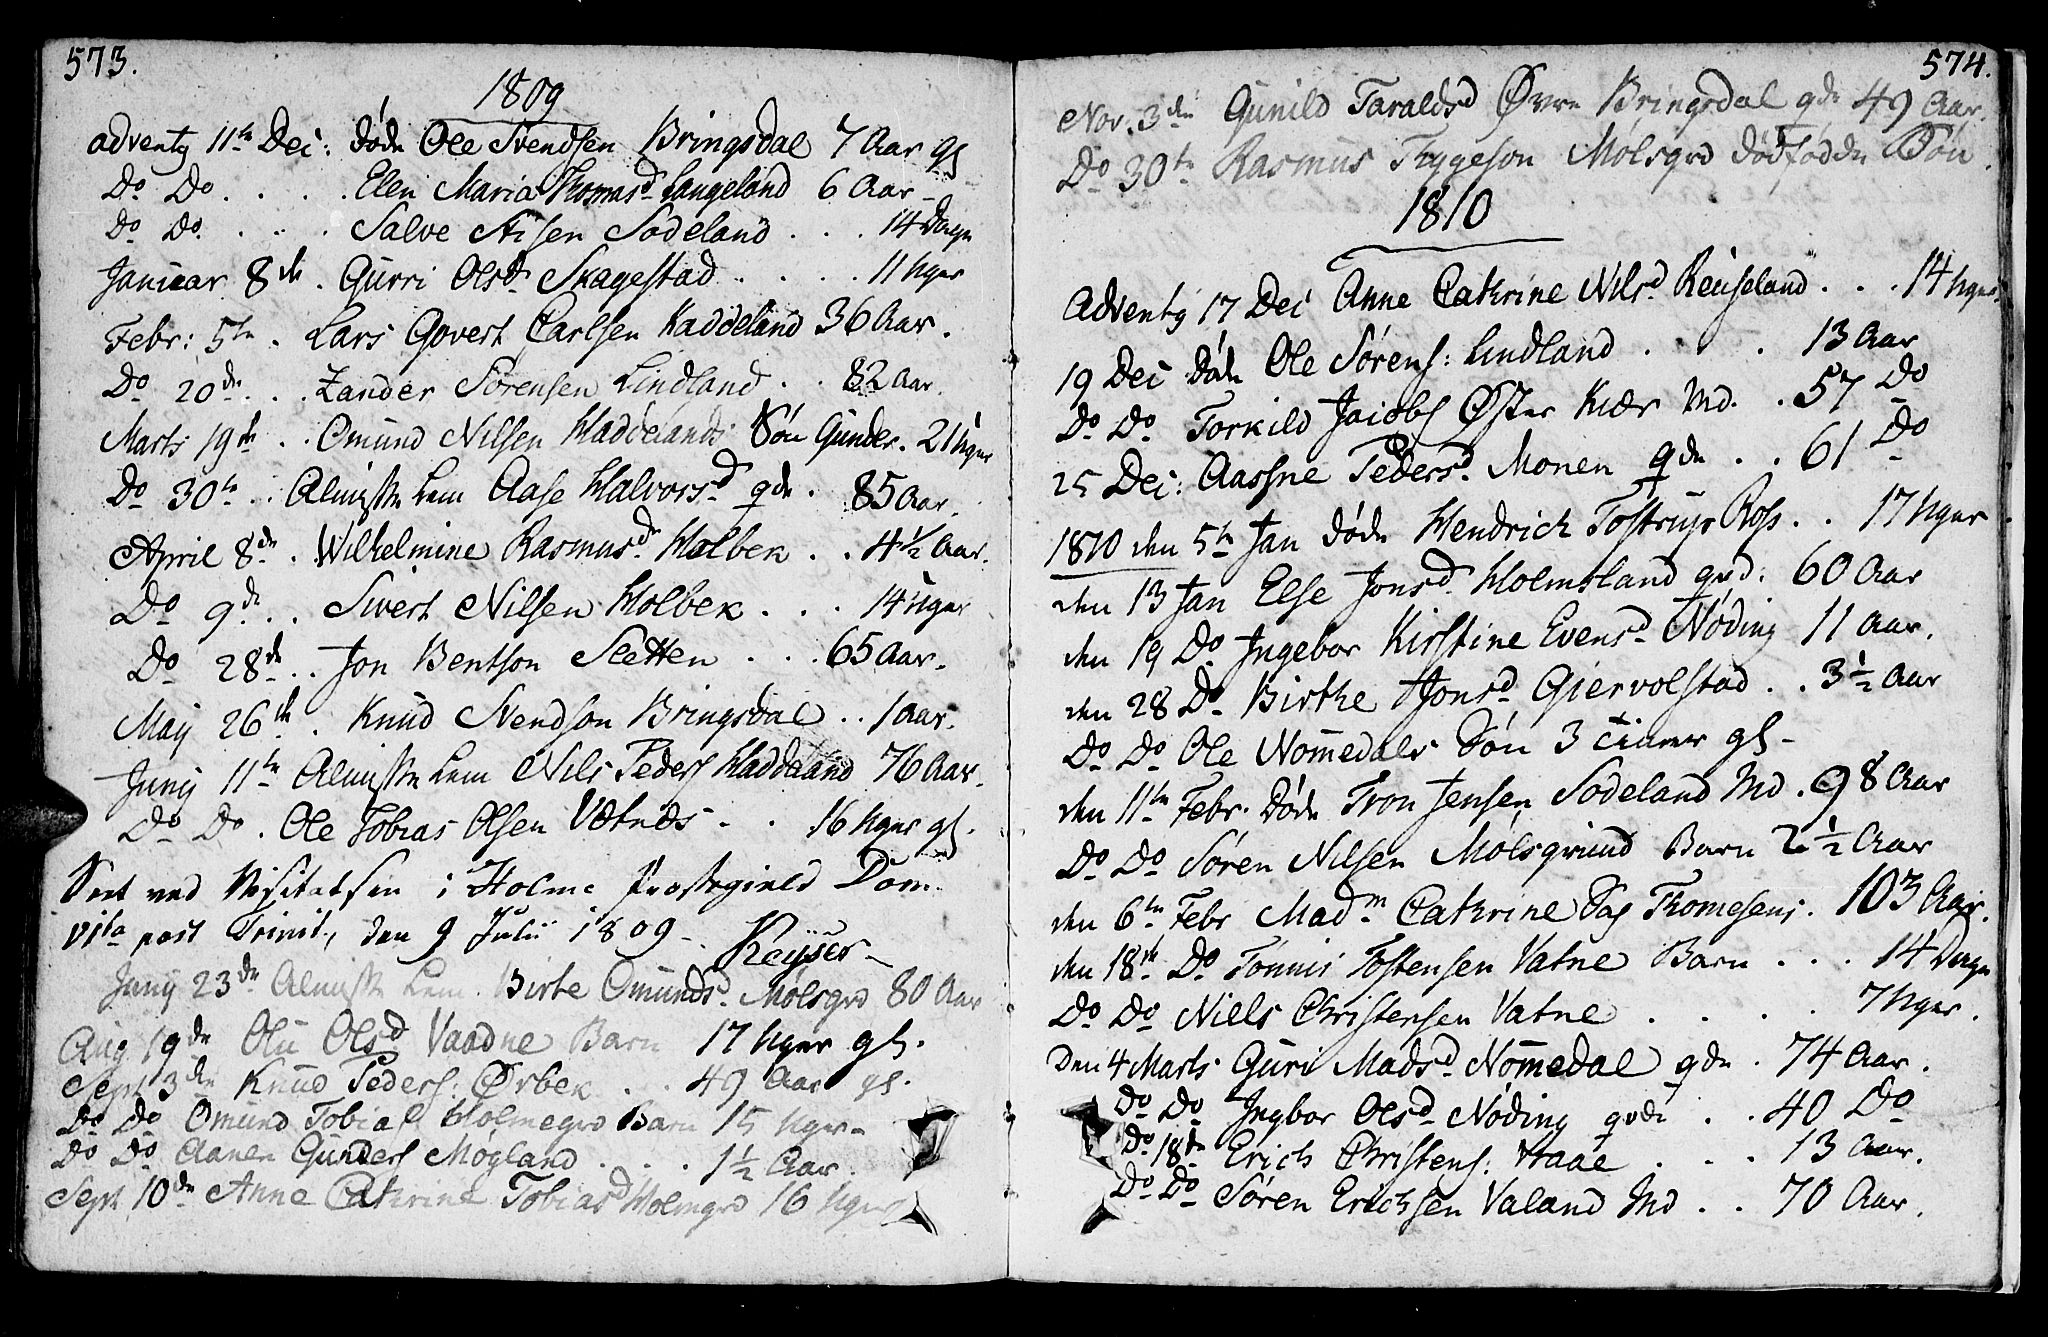 573.
1809
adventg 11te Dec: døde Ole Svendsen Bringsdal 7 Aar gl
Do Do . . . . Elen Maria Thomasd Langeland 6 Aar
Do Do . . . . Salve Sodeland . . . 14 Dage
Januar 8de . Gurri Olsd Skagestad . . . . 11 Uger
Febr: 5te . Lars Govert Carlsen Haddeland 36 Aar.
Do 20de . . . Zander Sørensen Lindland . . 82 Aar.
Marts 19de . . Omund Nilsen Haddelands Søn Gunder. 21 Uger
Do 30te . . Almisse Lem Aase Halvorsd qde . 85 Aar.
April 8de . Wilhelmine Rasmusd Holbek . . 4½ Aar.
Do 9de . . Sivert Nilsen Holbek . . . 14 Uger
Do 28de . . Jon Bentson Sletten . . . 65 Aar.
May 26de . Knud Svendson Bringsdal . . 1 Aar.
Junij 11te Almisse Lem Nils Peders Haddeland 76 Aar.
Do Do . Ole Tobias Olsen Vetnes . . 16 Uger gl.
Seet ved Visitatsen i Holme Prestegield Dom.
VIta post Trinit, den 9 Julii 1809 Keyser
Junij 23de Almisse Lem. Birte Omundsd. Mølsgrd 80 Aar
Aug 19de Olu Olsd Vaadne Barn 17 Uger gl.
Sept 3de Knud Peders: Ørbek . . 49 Aar gl.
Do Do Omund Tobias Holmegrd Barn 15 Uger
Do Do Aanen Gunders Møgland . . . . 1½ Aar.
Sept 10de Anne Cathrine Tobiasd Holmgrd 16 Uger
574.
Nov. 3die Gunild Taraldsd Øvre Bringsdal qde 49 Aar.
Do 30te Rasmus Tygeson Mølsgrd dødfødde Søn.
1810
Adventg 17 Dec Anne Cathrine Nilsd Reuseland . . . 14 Uger
19 Dec døde Ole Sørens: Lindland . . . 13 Aar
Do Do Torkild Jacobs Øster Kiær Md. . 57 Do
25 Dec: Aasne Pedersd. Monen qde . . 61 Do
1810 den 5te Jan døde Hendrich Tostrup Ross . . 17 Uger
den 13 Jan Else Jonsd. Holmsland qvd: 60 Aar
den 19 Do Ingebor Kirstine Evensd Nøding 11 Aar.
den 28 Do Birthe Jonsd Giervolstad . . 3½ Aar
Do Do Ole Nomedals Søn 3 timer gl
den 11te Febr. døde Tron Jensen Sodeland Md . 98 Aar
Do Do Søren Nilsen Mølsgrund Barn 2½ Aar
den 6te Febr Madm Cathrine Thomesens . 103 Aar.
den 18de Do Tønnis Tostensen Vatne Barn . . . 14 Dage
Do Do Niels Christensen Vatne . . . . 7 Uger.
Den 4 Marts Guri Madsd. Nomedal qde . 74 Aar.
Do Do Ingbor Olsd Nøding qvde . . 40 Do
Do 18de Erich Christens: Haae . . . 13 Aar.
Do Do Søren Erichsen Valand Md . . 70 Aar.